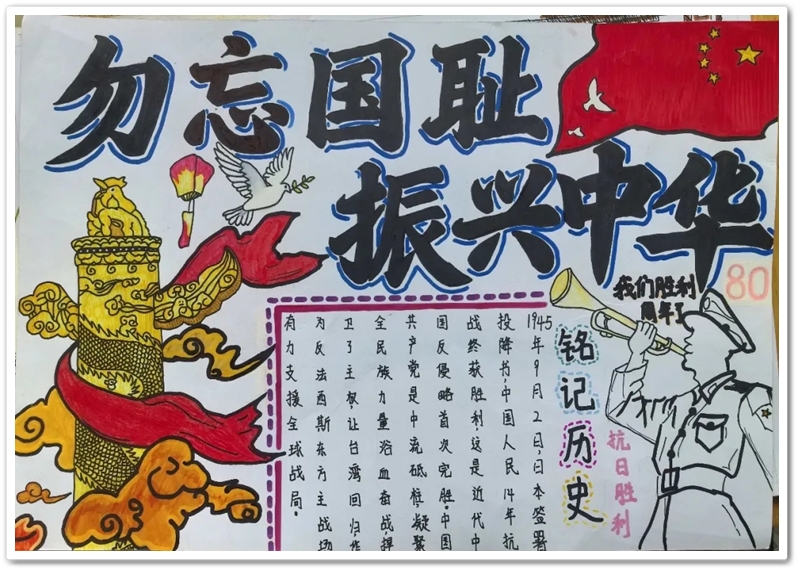 勿忘国耻
振兴中华
我们胜利
80
周年了
铭记历史
抗日胜利
1945年9月2日,日本签署
投降书,中国人民14年抗
战终获胜利这是近代中
国反侵略首次完胜。中国
共产党是中流砥柱,凝聚
全民族力量浴血奋战,捍
卫了主权,让台湾回归,作
为反法西斯东方主战场
有力支援全球战局。